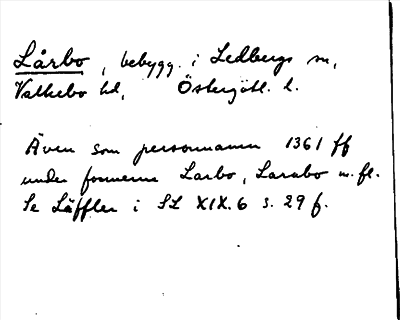 Lårbo, bebygg. i Ledbergs sn,
Valkebo hd, Östergötl. l.
Även som personnamn 1361 ff
under formerna Larbo, Larabo m. fl.
Se Läffler i SL XIX.6 s. 29 f.